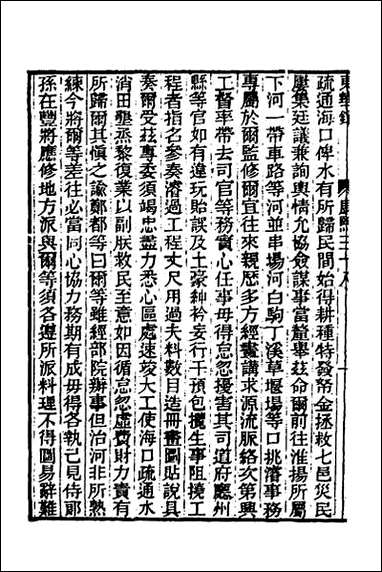 東華錄 康熙三十八
疏通海口俾水有所歸民間始得耕種特發帑金拯救七邑災民
屢集廷議兼詢輿情允協僉謀事當釐舉茲命爾前往淮揚所屬
下河一帶車路等河並串場河白駒丁溪草堰場等口挑濬事務
專屬於爾監修爾宜往來親歷多方經畫講求源流脈絡次第興
工督率帶去司官等務實心任事毋得怠忽擾害其司道府廳州
縣等官如有違玩貽誤及土豪紳衿妄行干預包攬生事阻撓工
程者指名參奏濬過工程丈尺用過夫料數目造冊畫圖貼說具
奏爾受茲專委須竭忠盡力悉心區處速竣大工使海口疏通水
消田墾蒸黎復業以副朕救民至意如因循怠忽虛費財力責有
所歸爾其愼之諭鄭都等曰爾等雖經部院辦事但治河非所熟
練今將爾等差往必當同心協力務期有成毋得各執己見侍郞
孫在豐將應修地方派與爾等須各遵所派料理不得圖易辭難